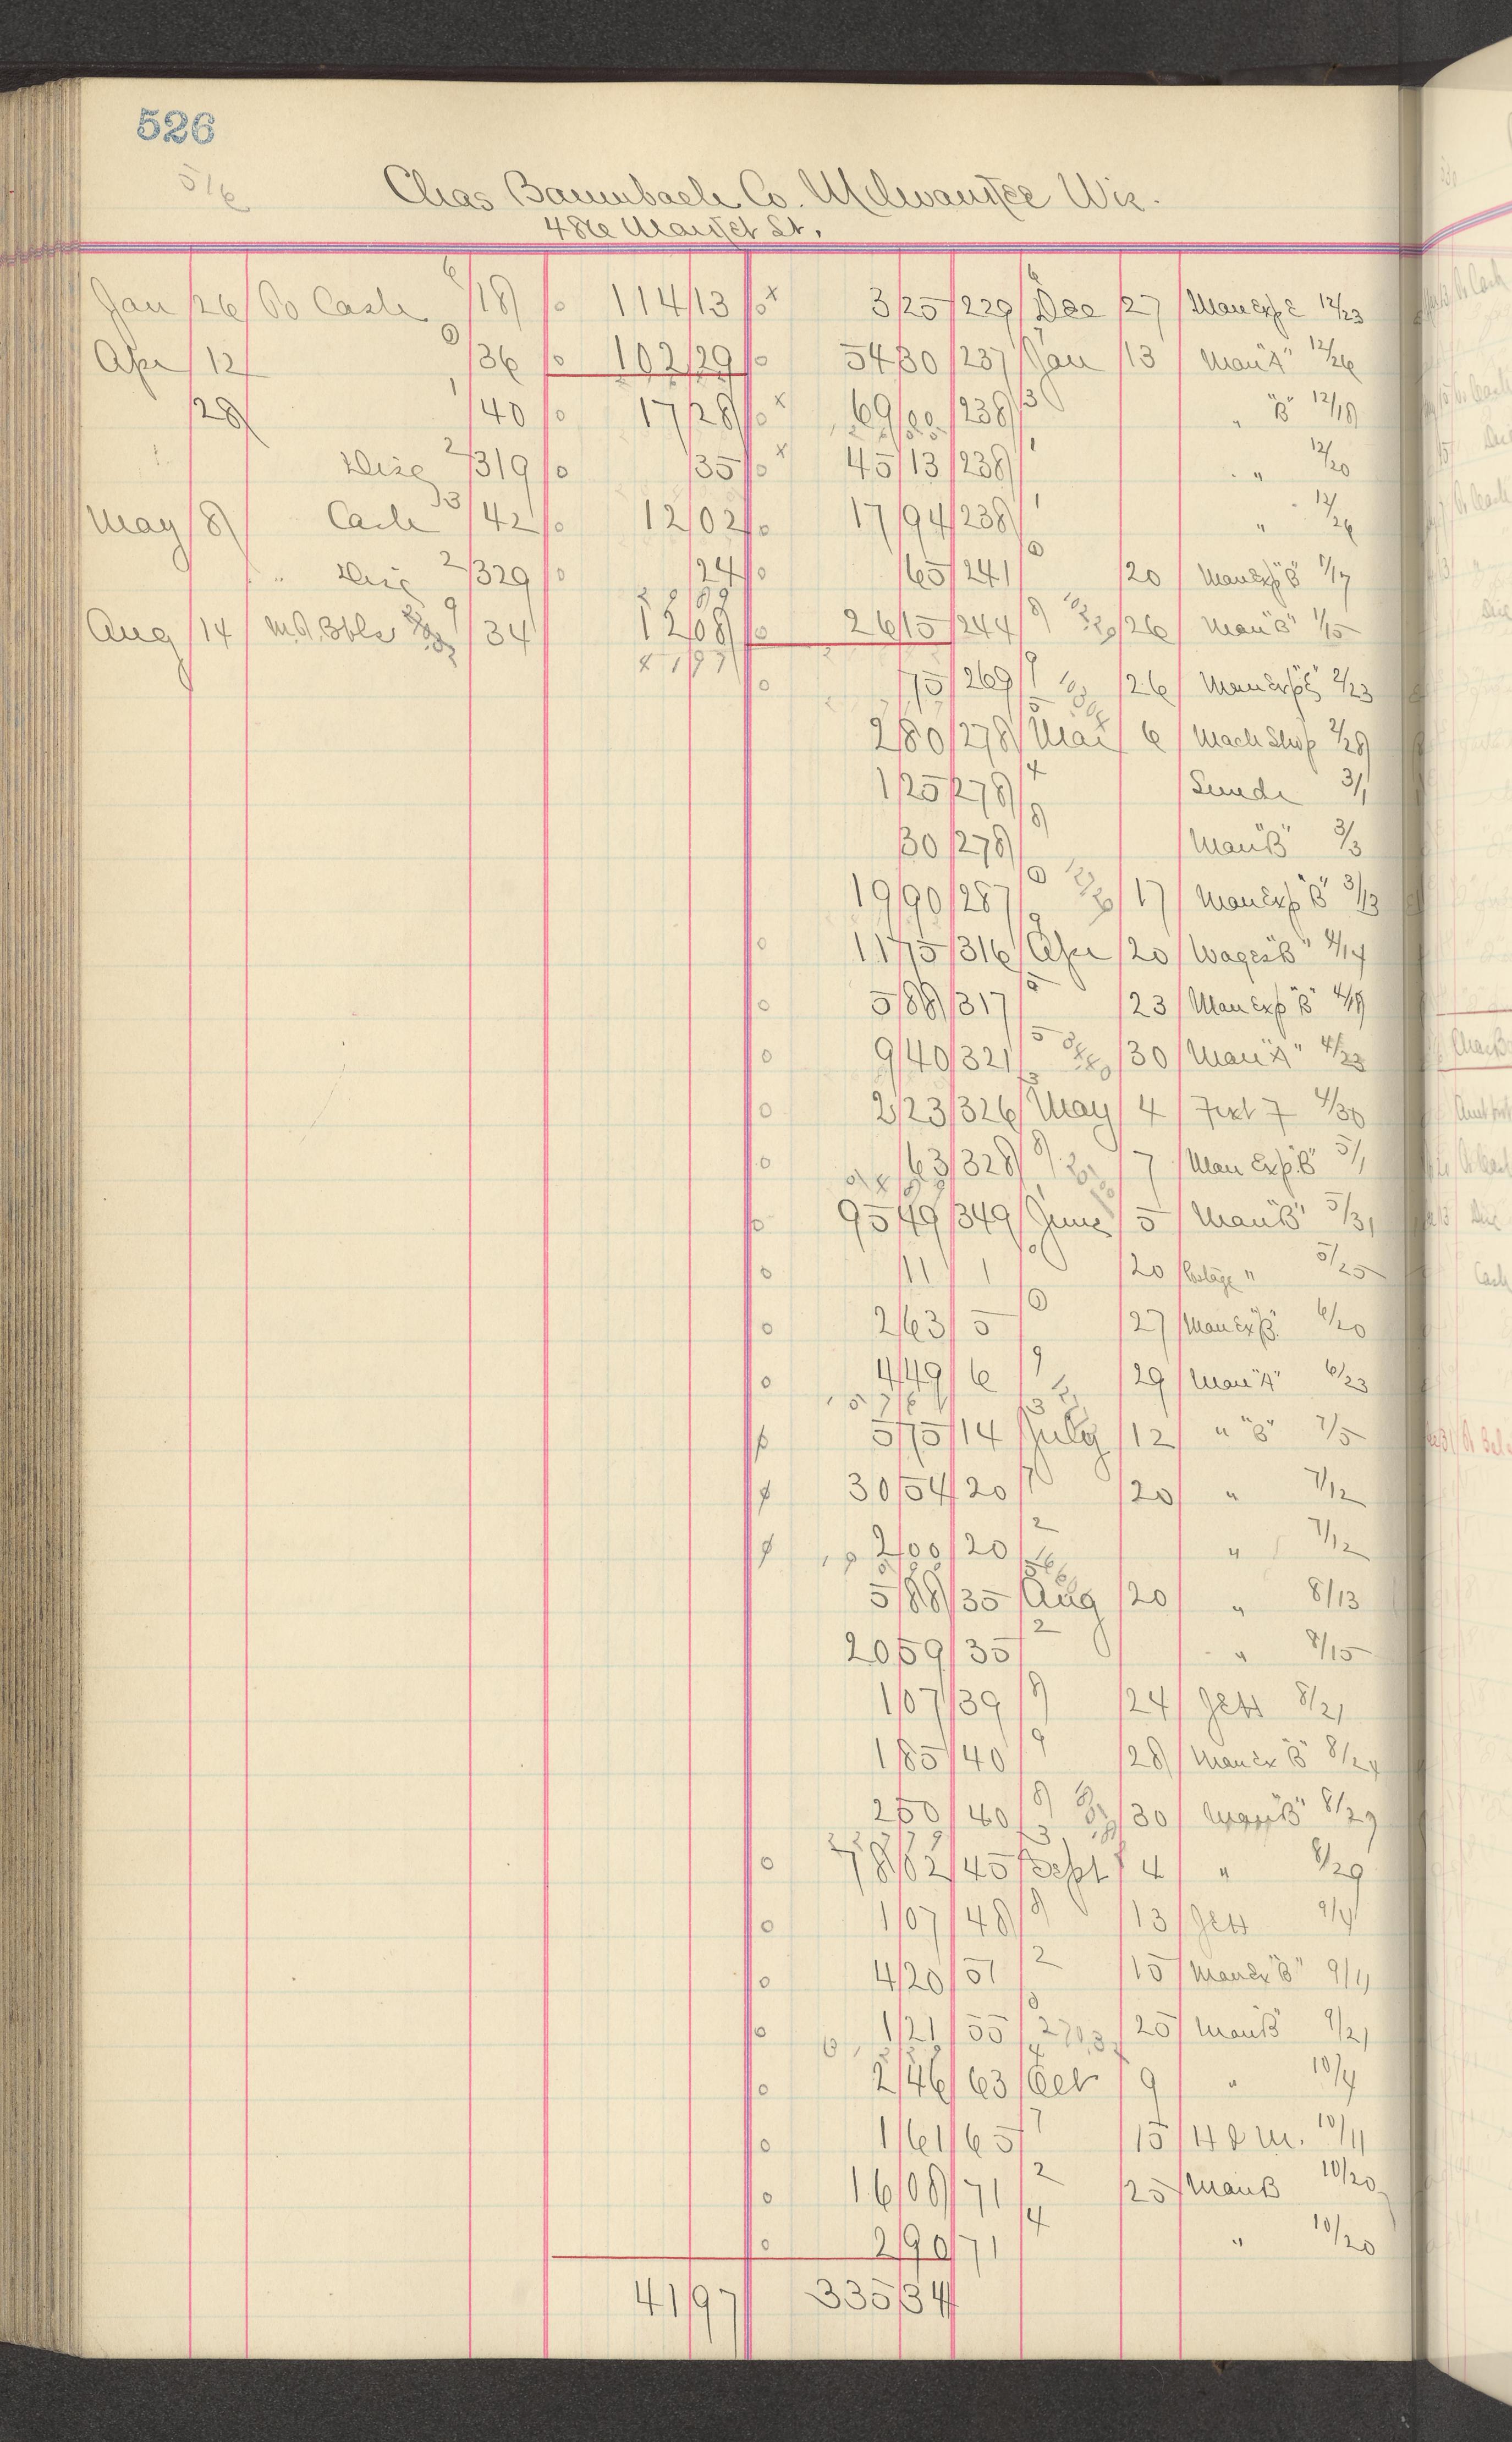 526
516
Chas Baumbach Co. Milwaukee Wis.
486 Market St.
Jan 26 To Cash 18 114 13 3 25 229 Dec 27 Man Exp 12/23
Apr 12 36 102 29 54 30 237 Jan 13 Man "A" 12/26
28 40 17 28 69 00 238 " "B" 12/18
Disc 319 35 45 13 238 " 12/20
May 8 Cash 42 12 02 17 94 238 " 12/26
" Disc 329 24 65 241 20 Man Exp "B" 1/17
Aug 14 34 12 08 26 15 244 26 Man "B" 1/15
41 97
75 269 26 Man Exp "B" 2/23
2 80 278 Mar 6 Mach Shop 2/28
1 25 278 3/1
30 278 Man "B" 3/3
19 90 287 17 Man Exp "B" 3/13
11 75 316 Apr 20 Wages "B" 4/14
5 88 317 23 Man Exp "B" 4/18
9 40 321 30 Man "A" 4/23
2 23 326 May 4 4/30
63 328 7 Man Exp "B" 5/1
95 49 349 June 5 Man "B" 5/31
11 1 20 Postage " 5/25
2 63 5 27 Man Ex "B" 6/20
4 49 6 29 Man "A" 6/23
5 75 14 July 12 " "B" 7/5
30 54 20 20 " 7/12
2 00 20 " 7/12
5 88 35 Aug 20 " 8/13
20 59 35 " 8/15
1 07 39 24 8/21
1 85 40 28 Man Ex "B" 8/24
2 50 40 30 "B" 8/29
78 62 45 Sept 4 " 8/29
1 07 48 13 9/4
4 20 51 15 Man Ex "B" 9/11
1 21 55 25 Man "B" 9/21
2 46 63 Oct 9 " 10/4
1 61 65 15 10/11
16 08 71 25 Man B 10/20
2 90 71 " 10/20
41 97 335 34